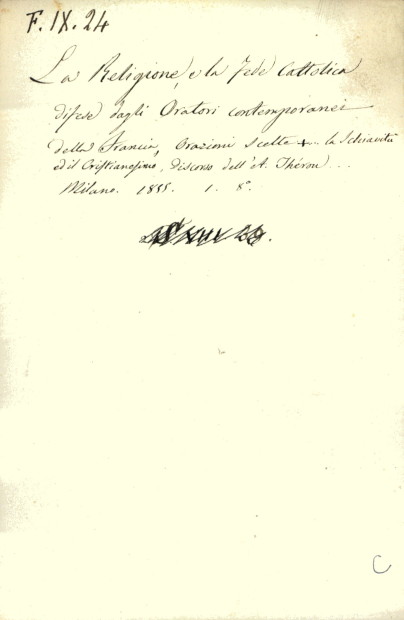 F. IX. 24
La Religione, e la Fede Cattolica
difese dagli Oratori contemporanei
della Francia, Orazioni scelte +... la Schiavitù
ed il Cristianesimo, discorso dell'A. Théron ...
Milano. 1855. 1. 8°.
C